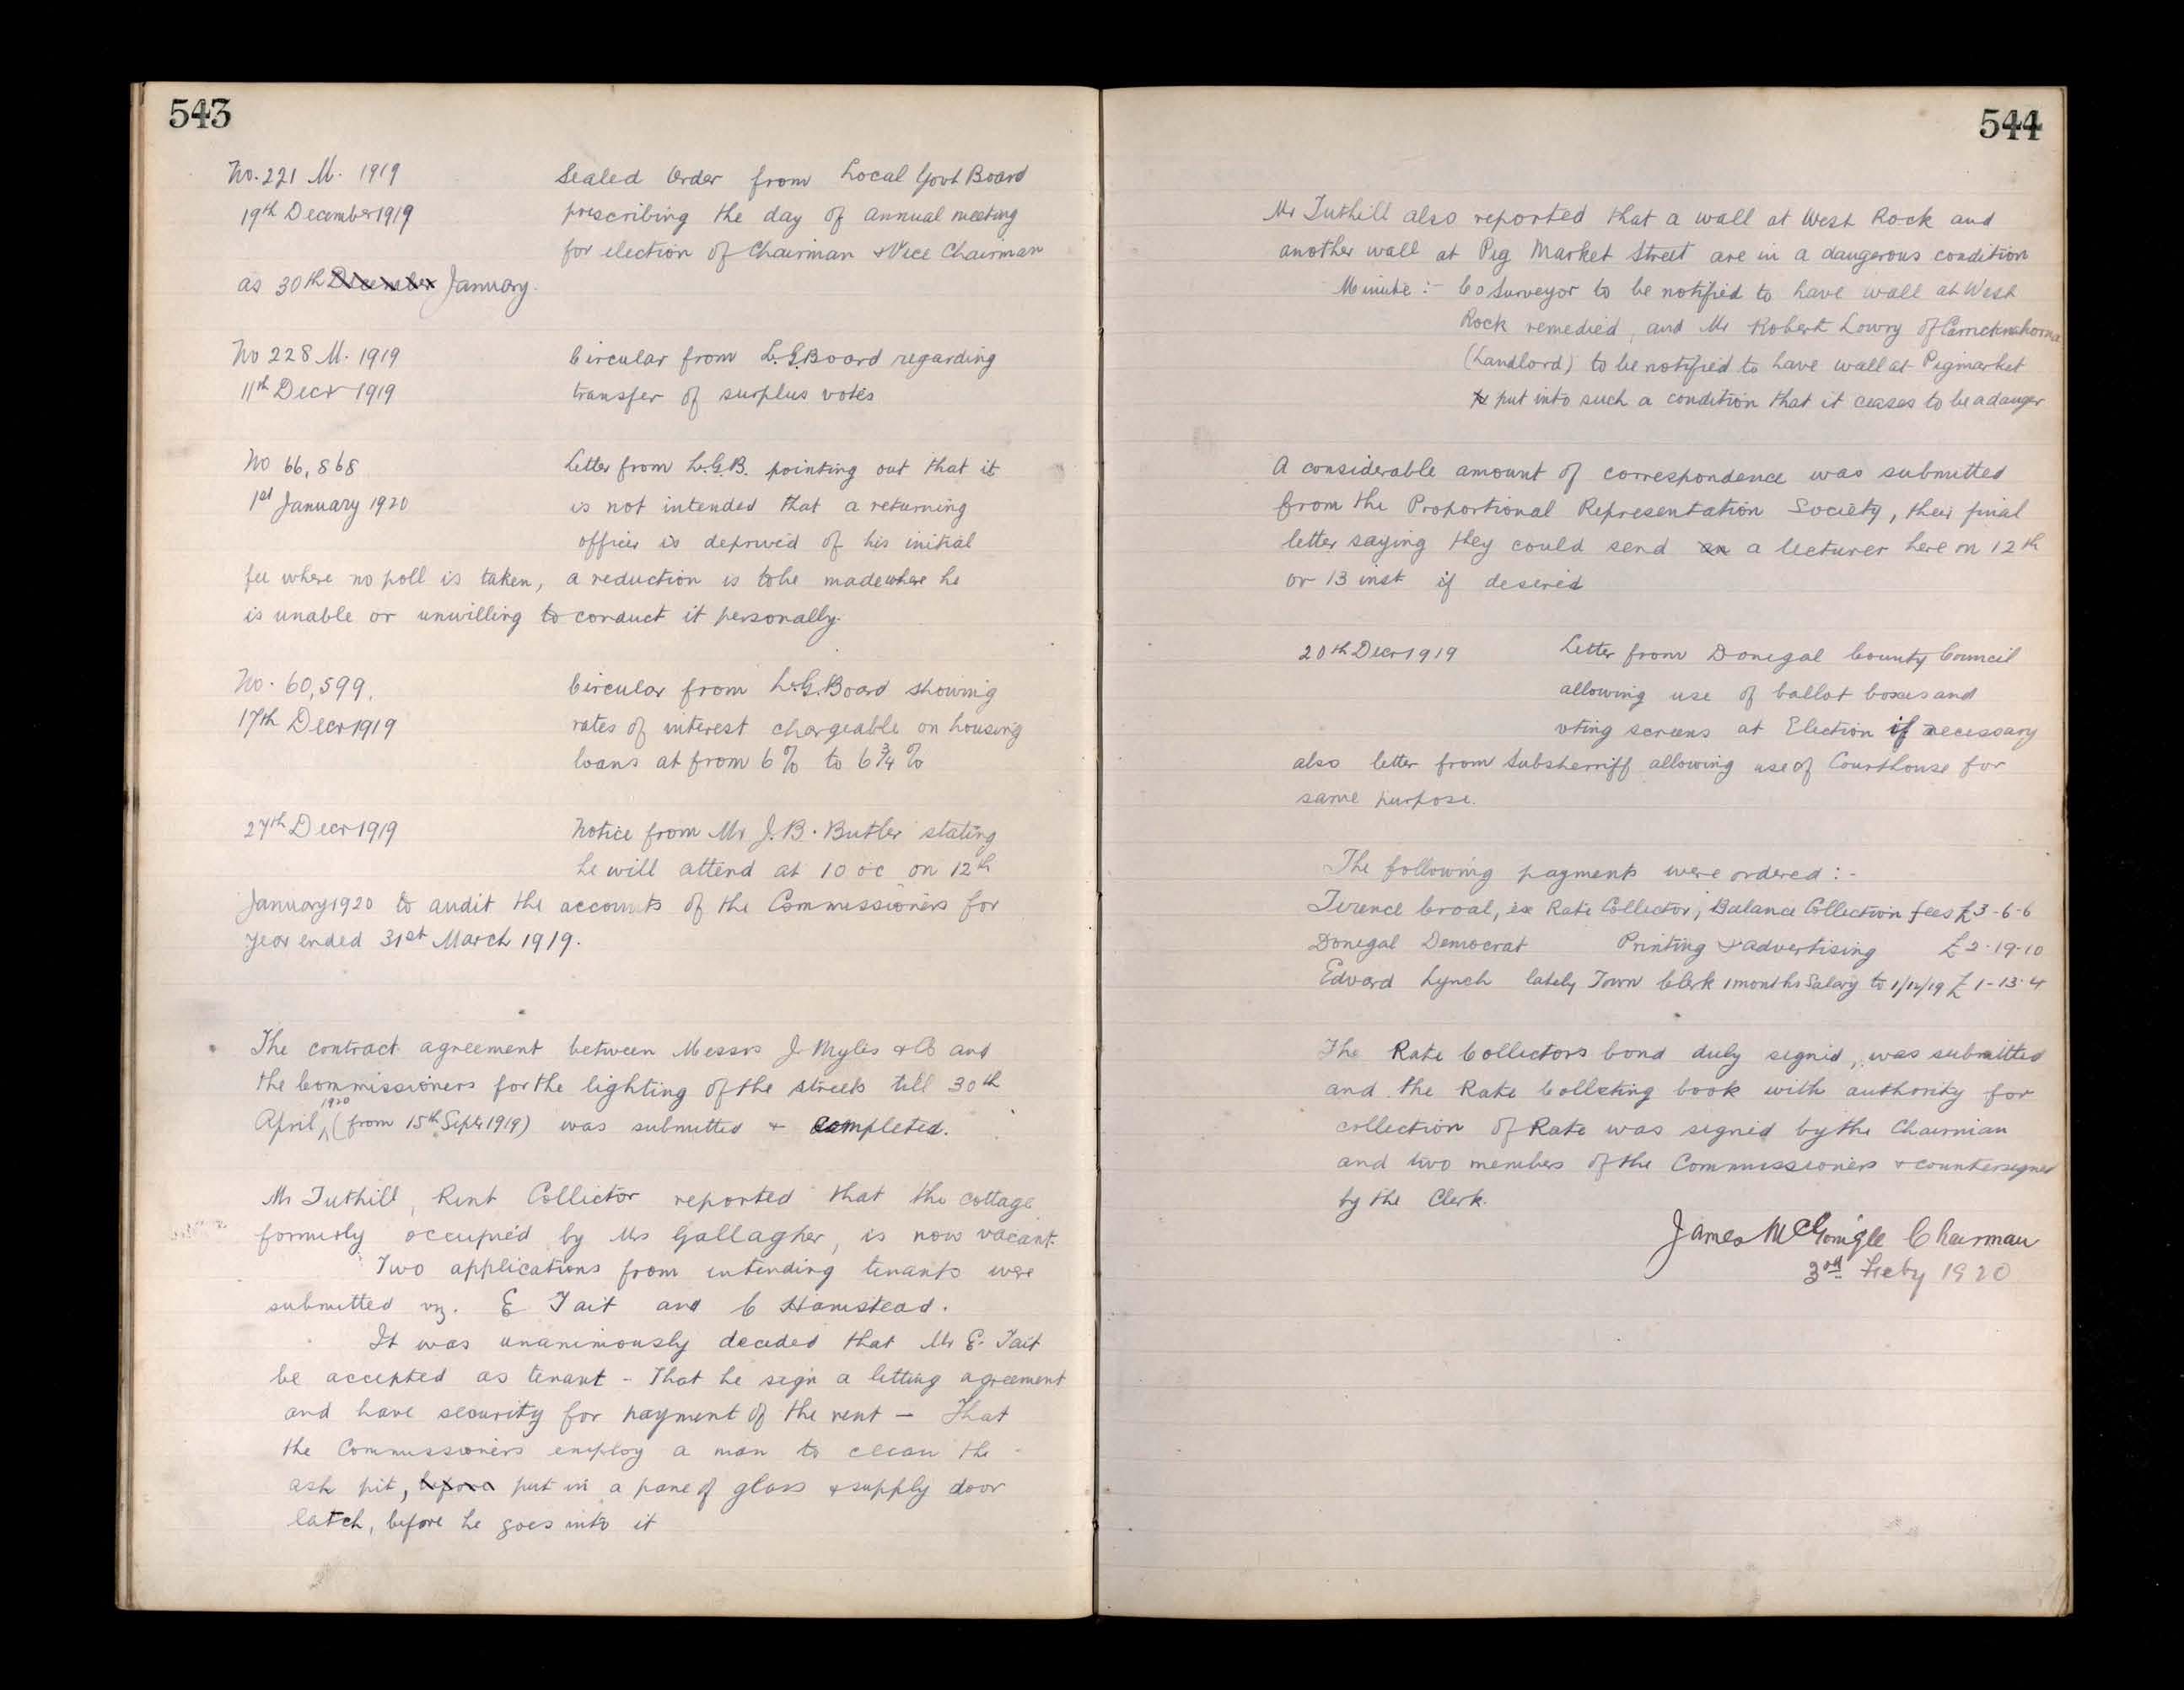 543
No. 221 M. 1919 Sealed Order from Local Govt Board
19th December 1919 prescribing the day of annual meeting
for election of Chairman & Vice Chairman
as 30th December January.
No 228 M. 1919 Circular from L.G.Board regarding
11th Decr 1919 transfer of surplus votes
No 66,868 Letter from L.G.B. pointing out that it
1st January 1920 is not intended that a returning
officer is deprived of his initial
fee where no poll is taken, a reduction is to be made where he
is unable or unwilling to conduct it personally.
No. 60,599. Circular from L.G.Board showing
17th Decr 1919 rates of interest chargeable on housing
loans at from 6% to 6¾%
27th Decr 1919 Notice from Mr J.B. Butler stating
he will attend at 10 oc on 12th
January 1920 to audit the accounts of the Commissioners for
year ended 31st March 1919.
The contract agreement between Messrs J Myles & Co and
the Commissioners for the lighting of the streets till 30th
April 1920 (from 15th Septr 1919) was submitted & completed.
Mr Tuthill, Rent Collector reported that the cottage
formerly occupied by Mrs Gallagher, is now vacant.
Two applications from intending tenants were
submitted viz. E Tait and C Hamstead.
It was unanimously decided that Mr E. Tait
be accepted as tenant - That he sign a letting agreement
and have security for payment of the rent - That
the Commissioners employ a man to clean the
ash pit, before put in a pane of glass & supply door
latch, before he goes into it
544
Mr Tuthill also reported that a wall at West Rock and
another wall at Pig Market Street are in a dangerous condition
Minute :- Co Surveyor to be notified to have wall at West
Rock remedied, and Mr Robert Lowry of
(Landlord) to be notified to have wall at Pigmarket
put into such a condition that it ceases to be a danger
A considerable amount of correspondence was submitted
from the Proportional Representation Society, their final
letter saying they could send an a lecturer here on 12th
or 13 inst if desired
20th Decr 1919 Letter from Donegal County Council
allowing use of ballot boxes and
voting screens at Election if necessary
also letter from Subsherriff allowing use of Courthouse for
same purpose.
The following payments were ordered :-
Terence Croal, ex Rate Collector, Balance Collection fees £3-6-6
Donegal Democrat Printing & advertising £2-19-10
Edward Lynch lately Town Clerk 1 months Salary to 1/12/19 £1-13-4
The Rate Collectors bond duly signed, was submitted
and the Rate Collecting book with authority for
collection of Rate was signed by the Chairman
and two members of the Commissioners & countersigned
by the Clerk.
James McGonigle Chairman
3rd Feby 1920